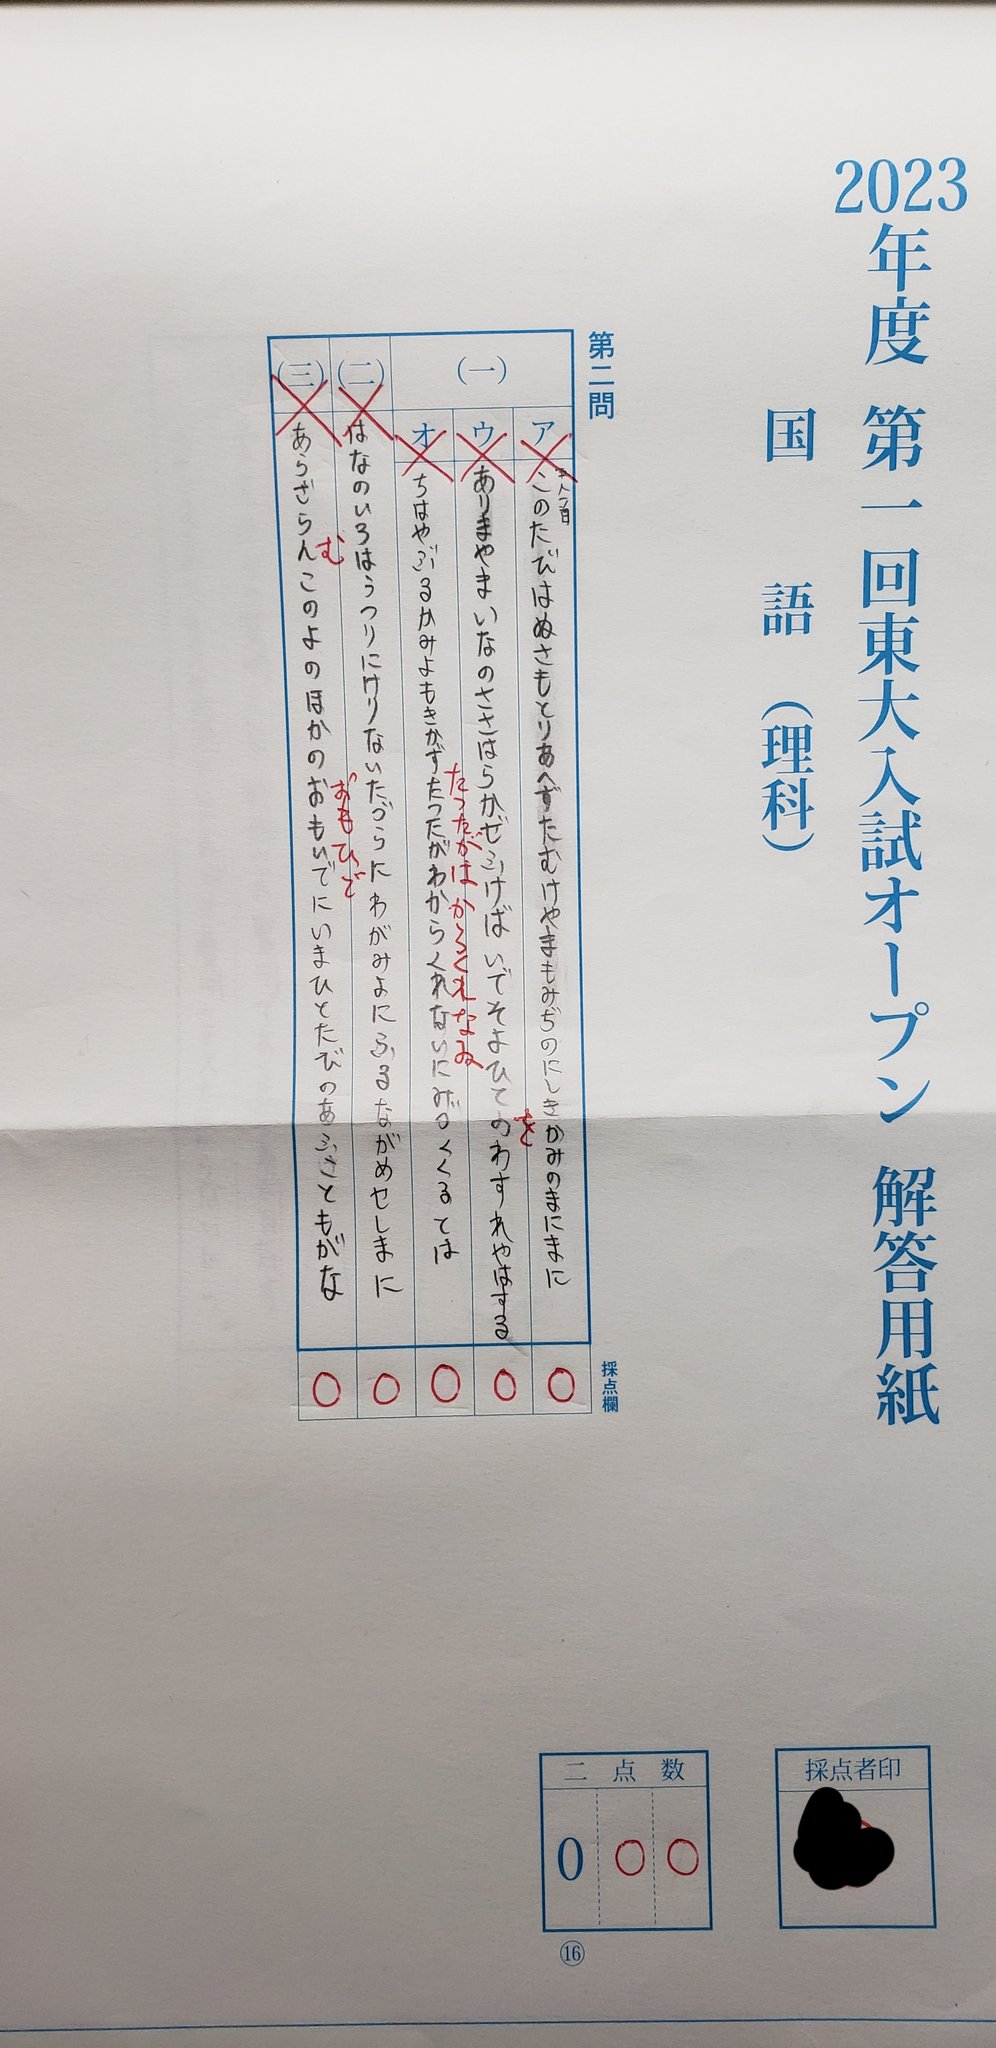 2023年度 第一回東大入試オープン 解答用紙
国語(理科)
第二問
(一)
ア
このたびはぬさもとりあへずたむけやまもみぢのにしきかみのまにまに
ウ
ありまやまいなのささはらかぜふけばいでそよひとのわすれやはする
を
オ
ちはやぶるかみよもきかずたつたがわからくれないにみづくくるとは
たつたがは からくれなゐ
(二)
はなのいろはうつりにけりないたづらにわがみよにふるながめせしまに
(三)
あらざらんこのよのほかのおもいでにいまひとたびのあふこともがな
む
おもひで
採点欄
○
○
○
○
○
二点数
0○○
採点者印
⑯